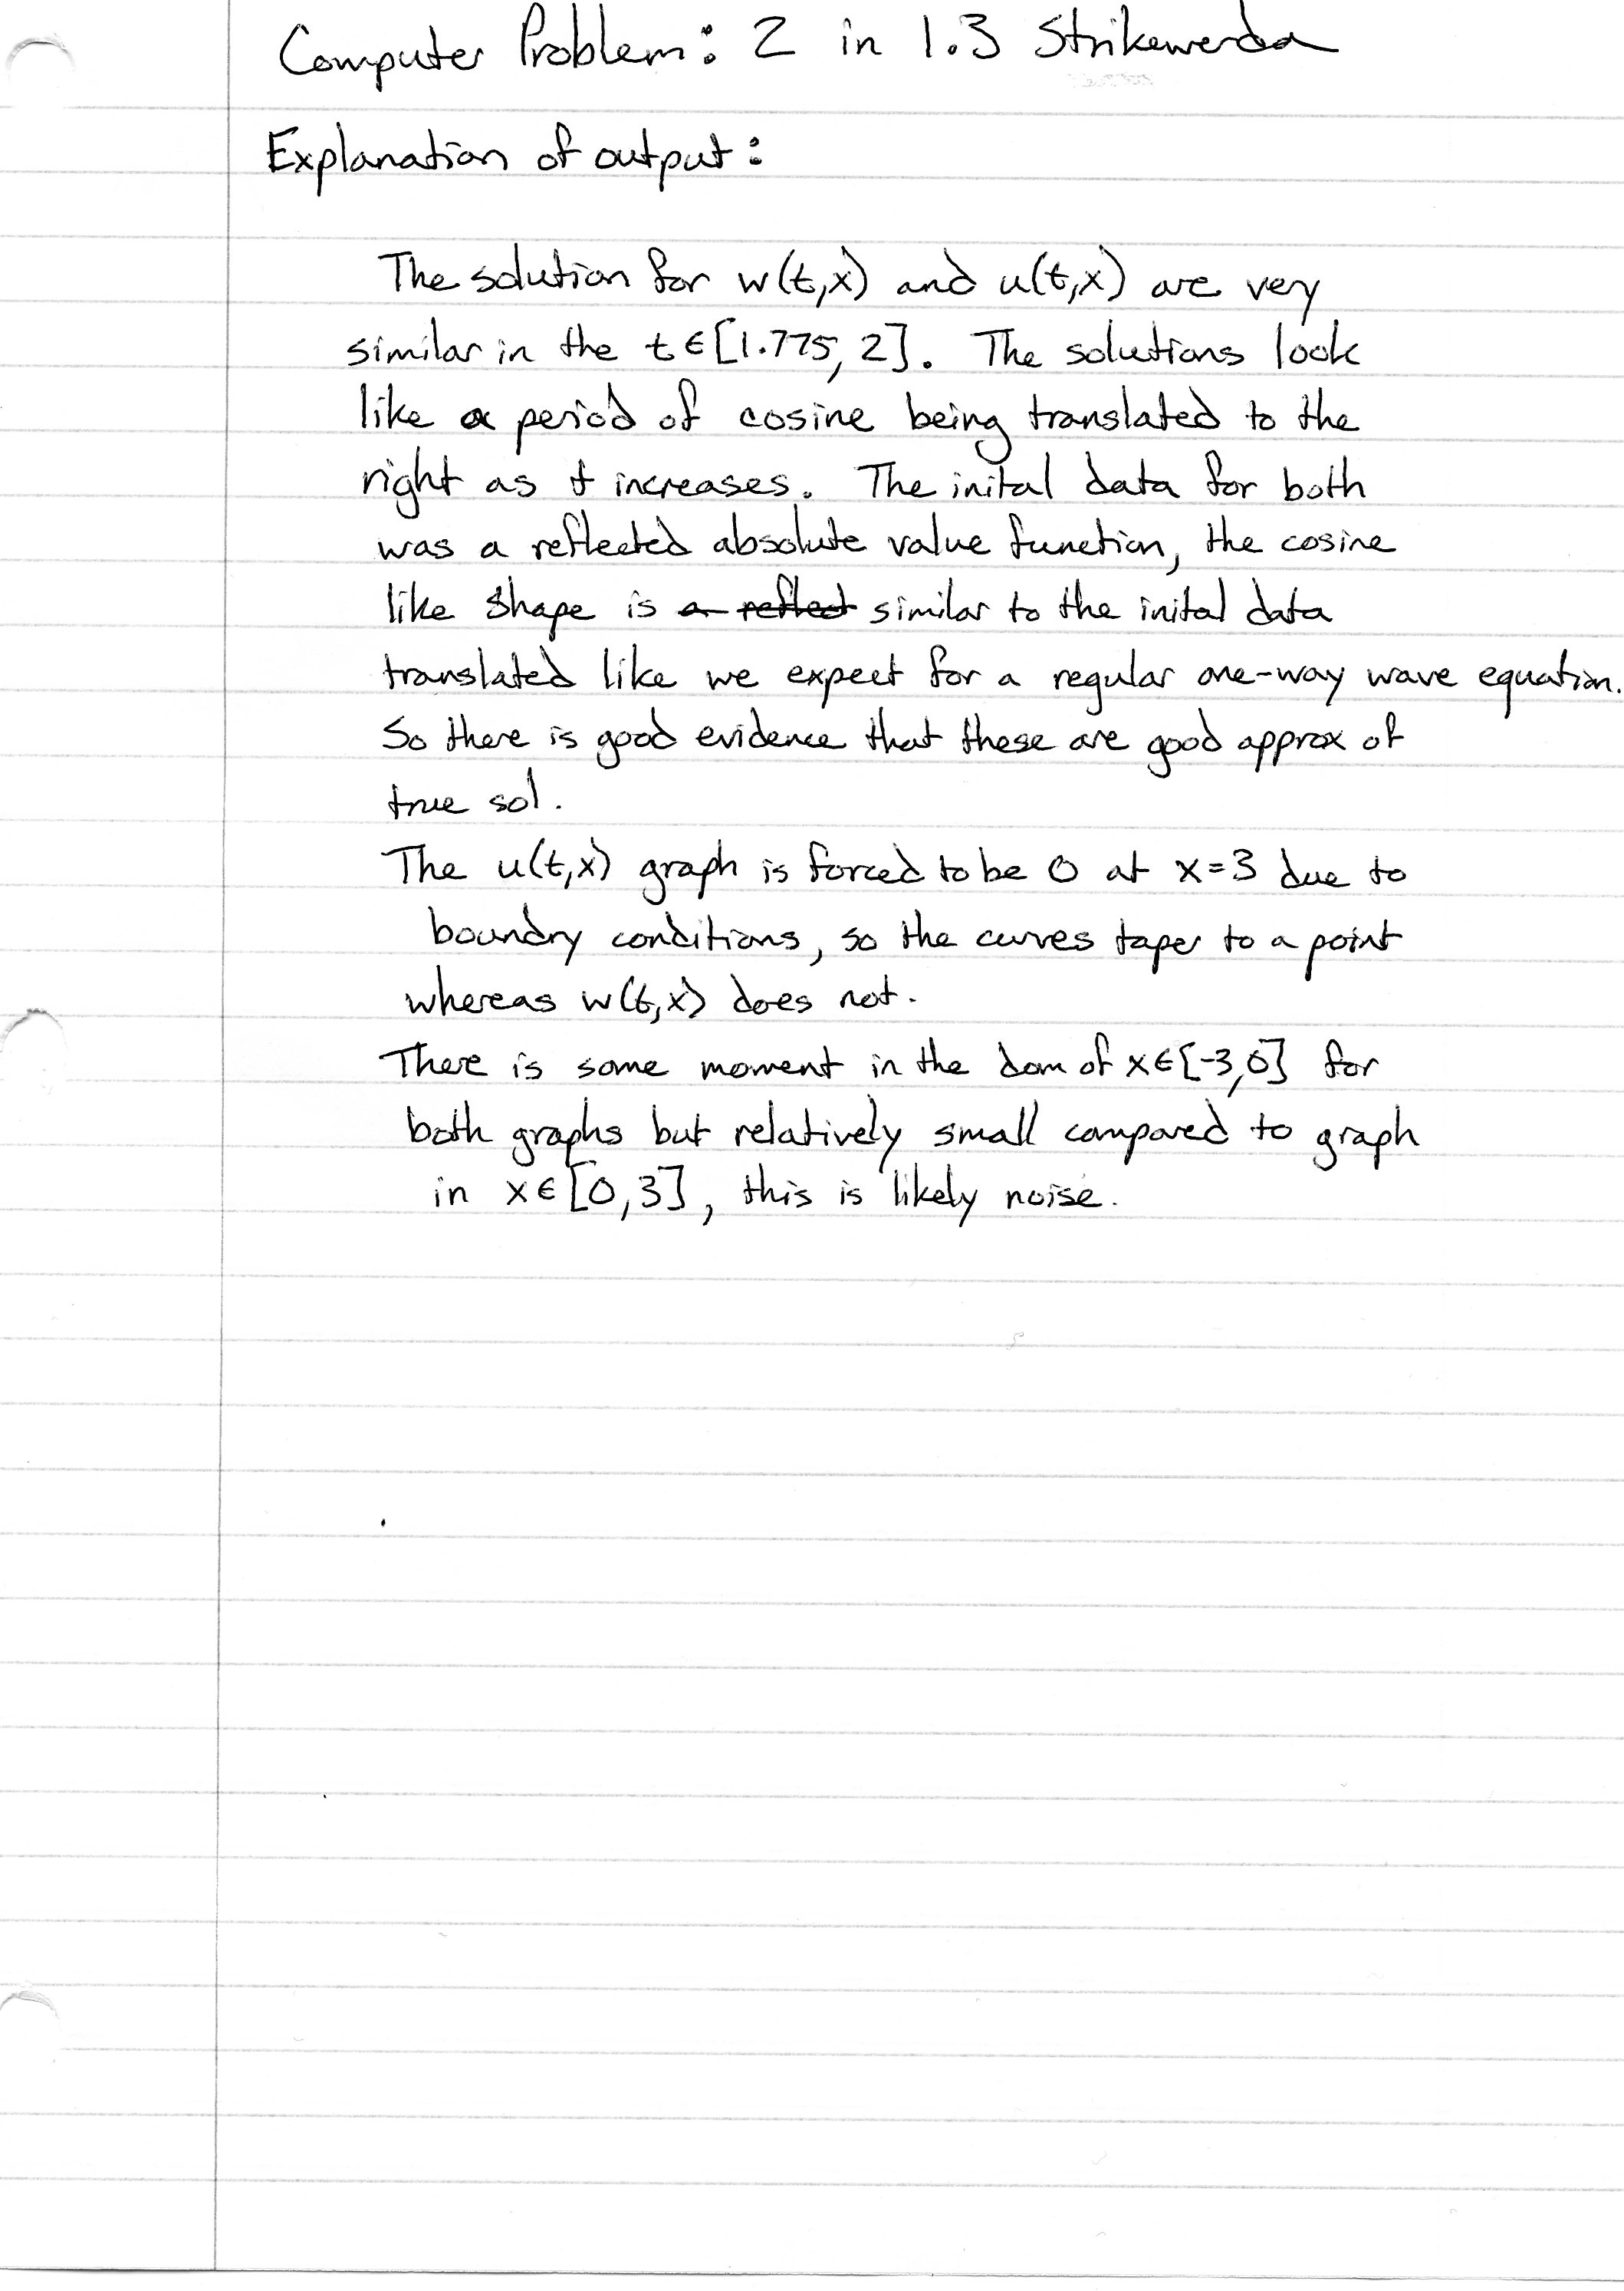 Computer Problem: 2 in 1.3 Strikwerda
Explanation of output:
The solution for w(t,x) and u(t,x) are very
similar in the t∈[1.775, 2]. The solutions look
like a period of cosine being translated to the
right as t increases. The inital data for both
was a reflected absolute value function, the cosine
like shape is a reflect similar to the inital data
translated like we expect for a regular one-way wave equation.
So there is good evidence that these are good approx of
true sol.
The u(t,x) graph is forced to be 0 at x=3 due to
boundry conditions, so the curves taper to a point
whereas w(t,x) does not.
There is some moment in the dom of x∈[-3,0] for
both graphs but relatively small compared to graph
in x∈[0,3], this is likely noise.